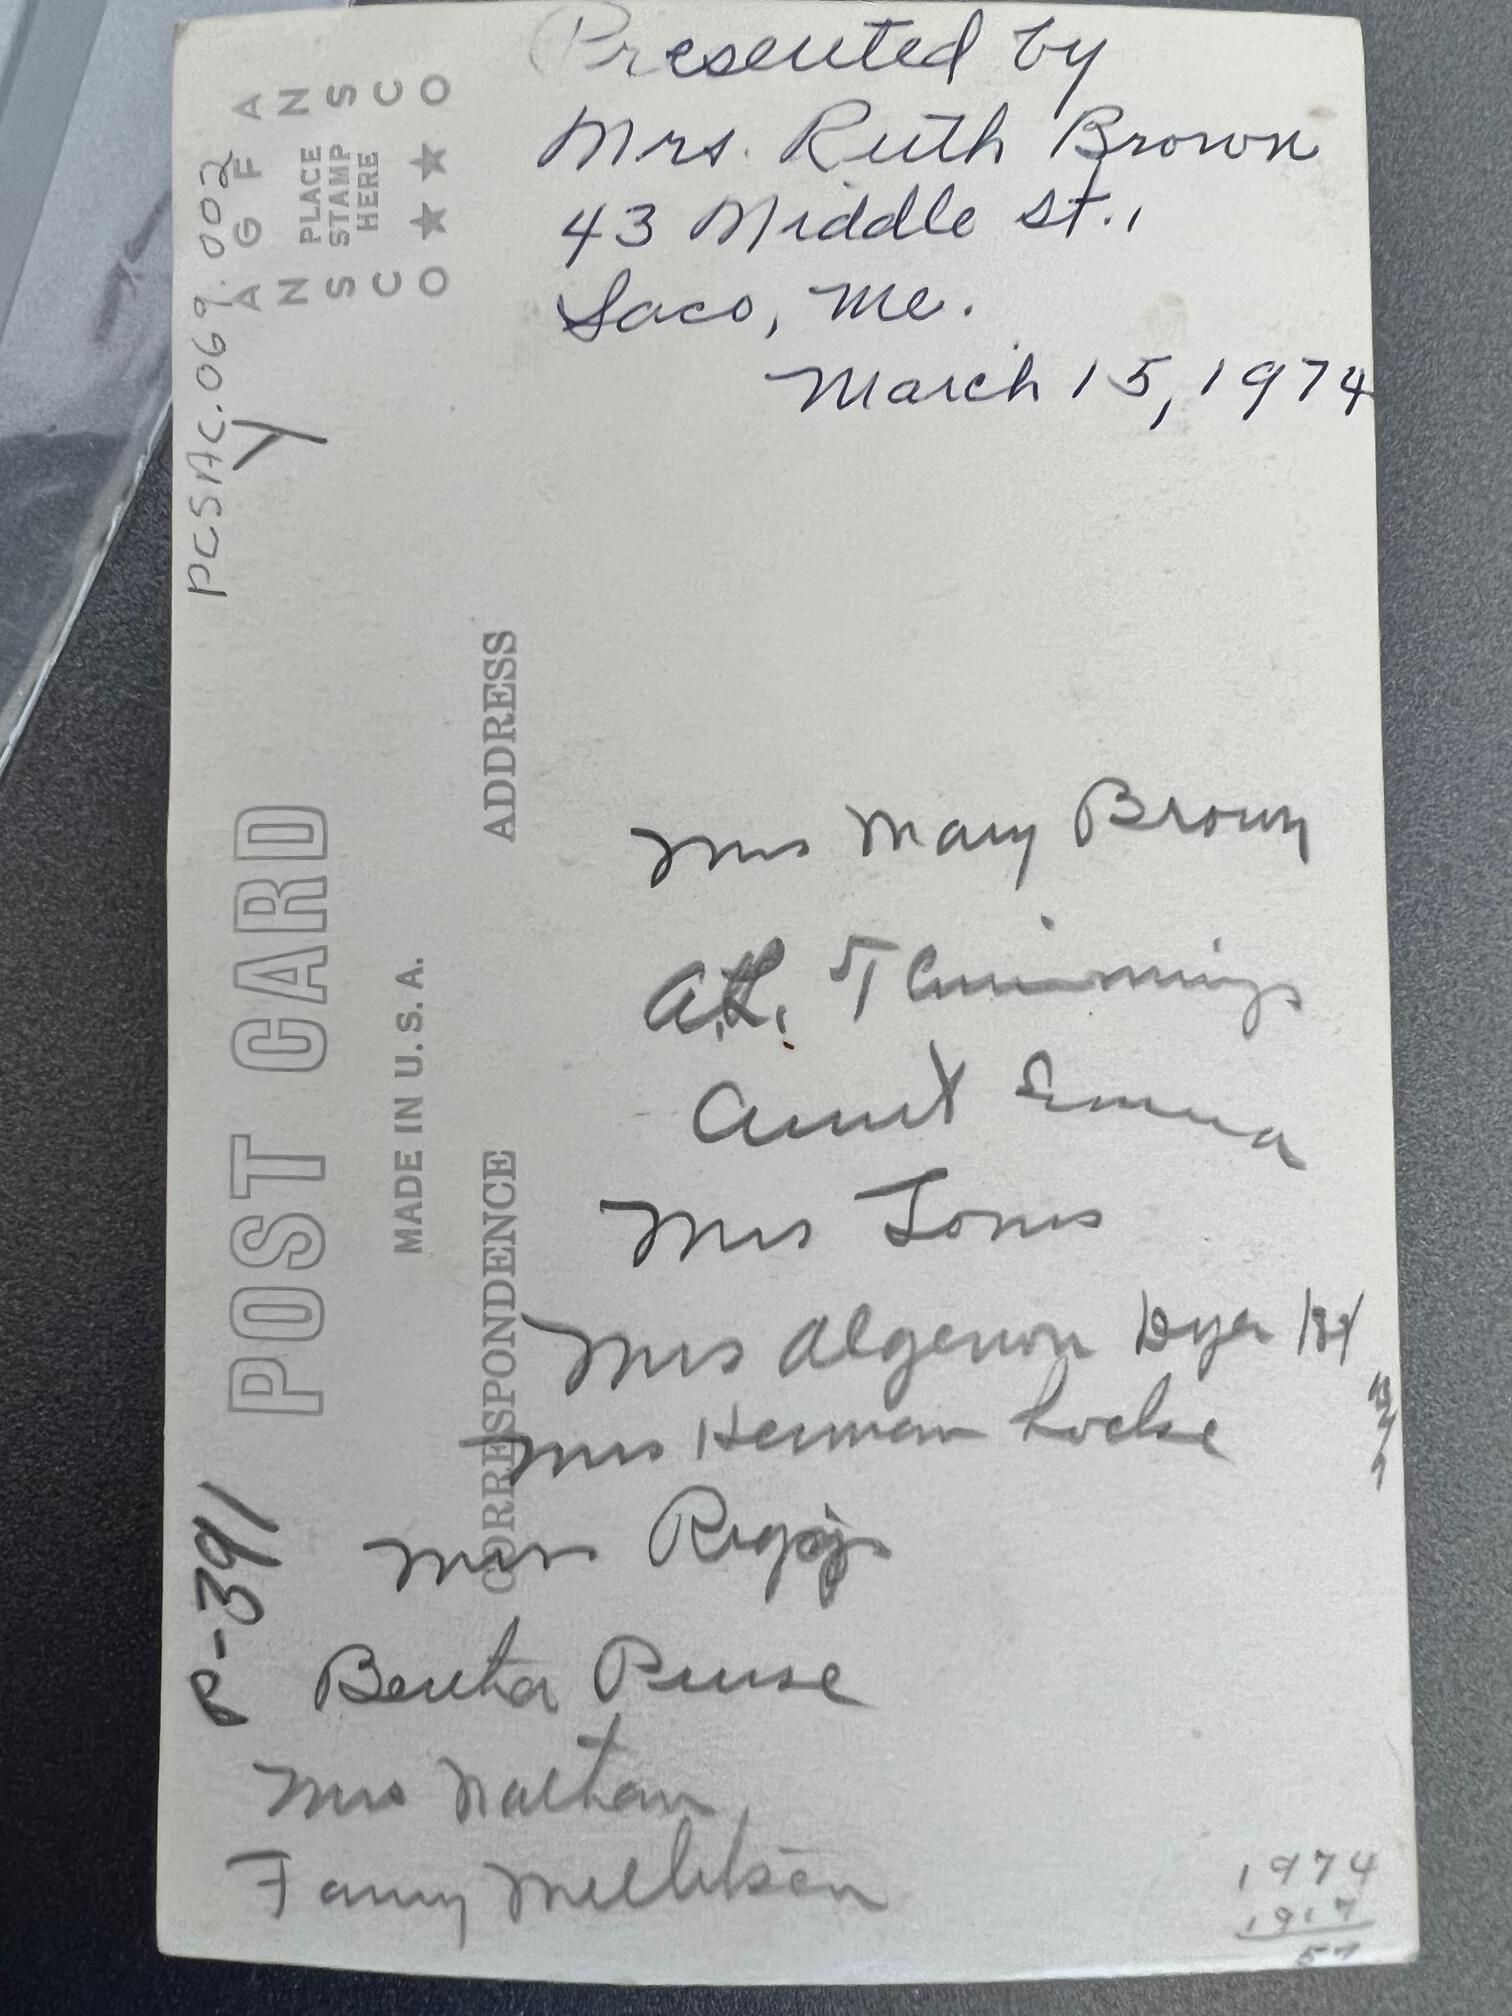 Presented by
Mrs. Ruth Brown
43 Middle St.,
Saco, Me.
March 15, 1974
PCSAC.069.002
AGFA
ANSCO
PLACE
STAMP
HERE
POST CARD
MADE IN U.S.A.
ADDRESS
CORRESPONDENCE
P-391
Mrs Mary Brown
Cummings
Aunt Emma
Mrs Jones
Mrs Algernon Dyer
Mrs Herman Locke
Mrs Riggs
Bertha
Mrs Nathan
Fanny
1974
1917
57